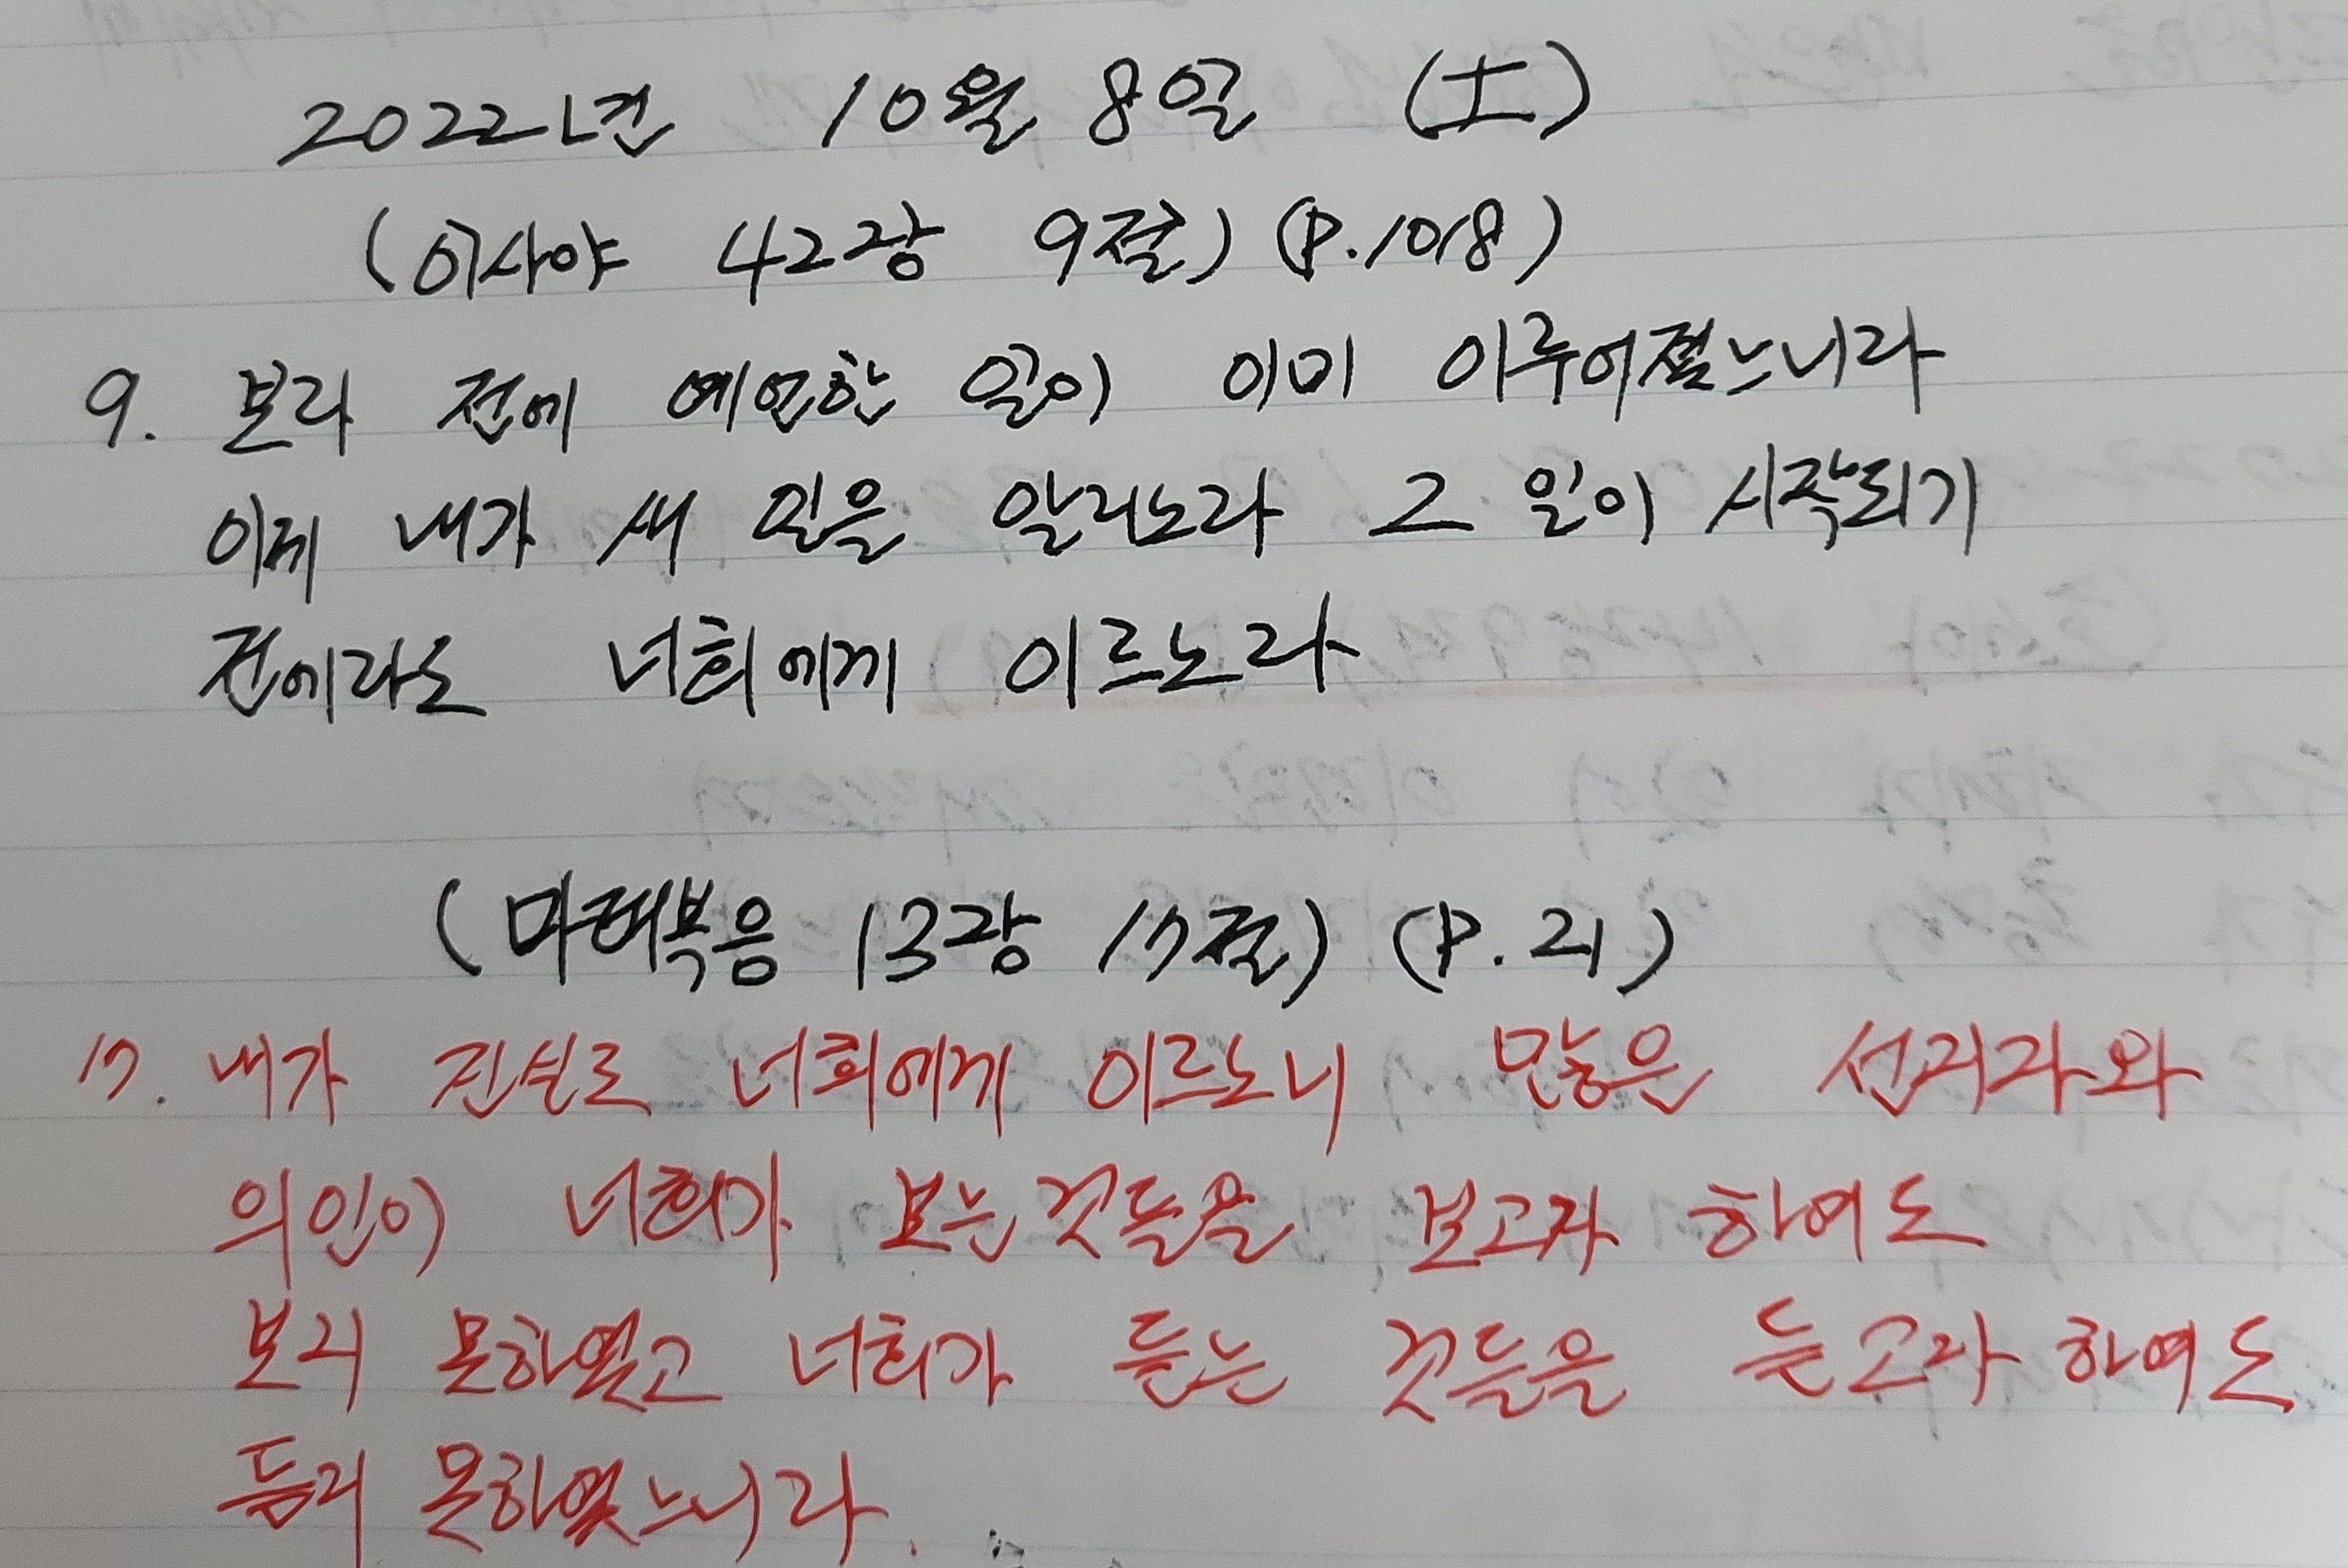 2022년 10월 8일 (土)
(이사야 42장 9절) (P.1018)
9. 보라 전에 예언한 일이 이미 이루어졌느니라
이제 내가 새 일을 알리노라 그 일이 시작되기
전에라도 너희에게 이르노라
(마태복음 13장 17절) (P.21)
17. 내가 진실로 너희에게 이르노니 많은 선지자와
의인이 너희가 보는 것들을 보고자 하여도
보지 못하였고 너희가 듣는 것들을 듣고자 하여도
듣지 못하였느니라.